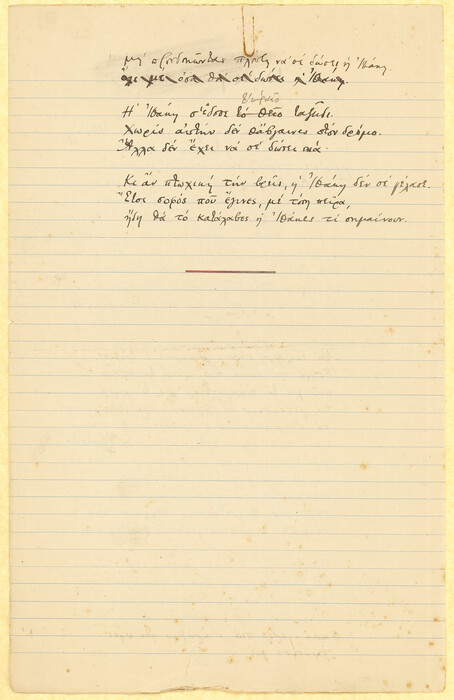 μὴ προσδοκῶντας πλούτη νὰ σὲ δώσει ἡ Ἰθάκη.
ὅσα θὰ σὲ δώσει ἡ Ἰθάκη.
ὡραῖο
Ἡ Ἰθάκη σ' ἔδωσε τὸ θεῖο ταξεῖδι.
Χωρὶς αὐτὴν δὲν θἄβγαινες στὸν δρόμο.
Ἄλλα δὲν ἔχει νὰ σὲ δώσει πιά.
Κι ἂν πτωχικὴ τὴν βρεῖς, ἡ Ἰθάκη δὲν σὲ γέλασε.
Ἔτσι σοφὸς ποῦ ἔγινες, μὲ τόση πεῖρα,
ἤδη θὰ τὸ κατάλαβες ᾑ Ἰθάκες τί σημαίνουν.